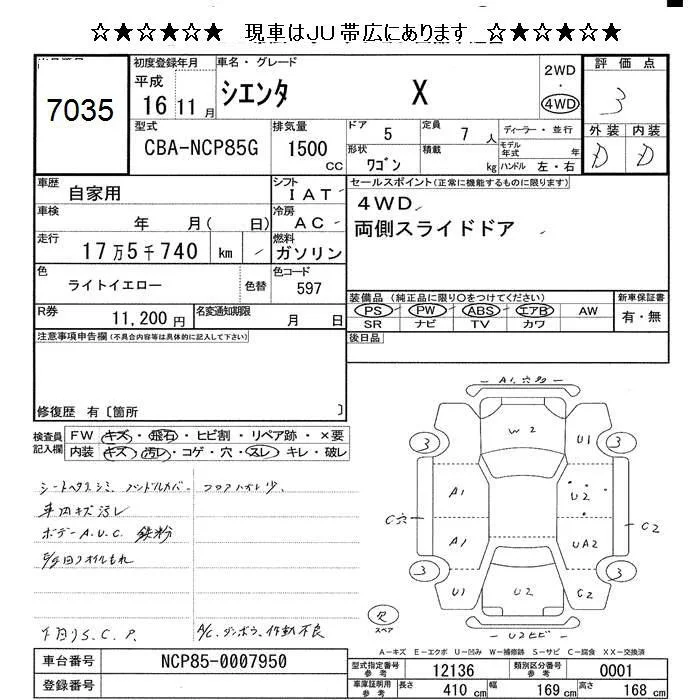 ☆★☆★☆★ 現車はJU帯広にあります ☆★☆★☆★
7035
初度登録年月
平成
16 11 月
車名・グレード
シエンタ X
2WD
・
4WD
評価点
3
外装 内装
D D
型式
CBA-NCP85G
排気量
1500
CC
ドア 5
定員 7 人
ディーラー・並行
モデル年式 年
形状 ワゴン
積載 kg
ハンドル 左・右
車歴 自家用
シフト I AT
セールスポイント(正常に機能するものに限ります)
4WD
両側スライドドア
車検 年 月( 日)
冷房 AC
走行 17万5千740 km
燃料 ガソリン
色 ライトイエロー
色替
色コード 597
装備品(純正品に限り○をつけてください)
PS PW ABS エアB AW
SR ナビ TV カワ
新車保証書
有・無
R券 11,200 円
名変通知期限 月 日
後日品
注意事項申告欄(不具合内容等は具体的に記入して下さい)
修復歴 有〔箇所 〕
検査員記入欄
FW キズ・飛石・ヒビ割・リペア跡・×要
内装 キズ・汚レ・コゲ・穴・スレ・キレ・破レ
フロアハガレ少、
車内キズ汚レ
ボデーA.U.C 鉄粉
下回りS.C.P.
作動不良
A1.穴多
W2
U1
3
3
A1
U2
C穴
C2
A1
UA2
3
3
U1
U2
C2
欠
スペア
U2ヒビ
A-キズ E-エクボ U-凹み W-補修跡 S-サビ C-腐食 XX-交換済
車台番号 NCP85-0007950
登録番号
型式指定番号 参考 12136
類別区分番号 参考 0001
車庫証明用 参考 長さ 410 cm 幅 169 cm 高さ 168 cm